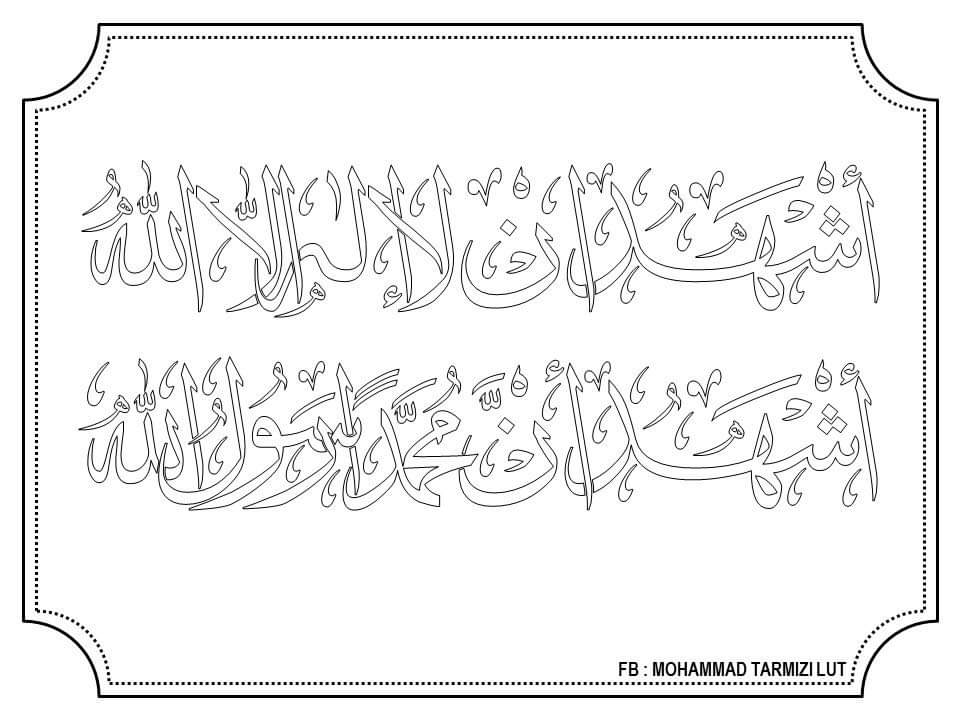 أَشْهَدُ انْ لَا إِلٰهَ إِلَّا اللّٰهُ
أَشْهَدُ أَنَّ مُحَمَّدًا رَسُولُ اللّٰهِ
FB : MOHAMMAD TARMIZI LUT